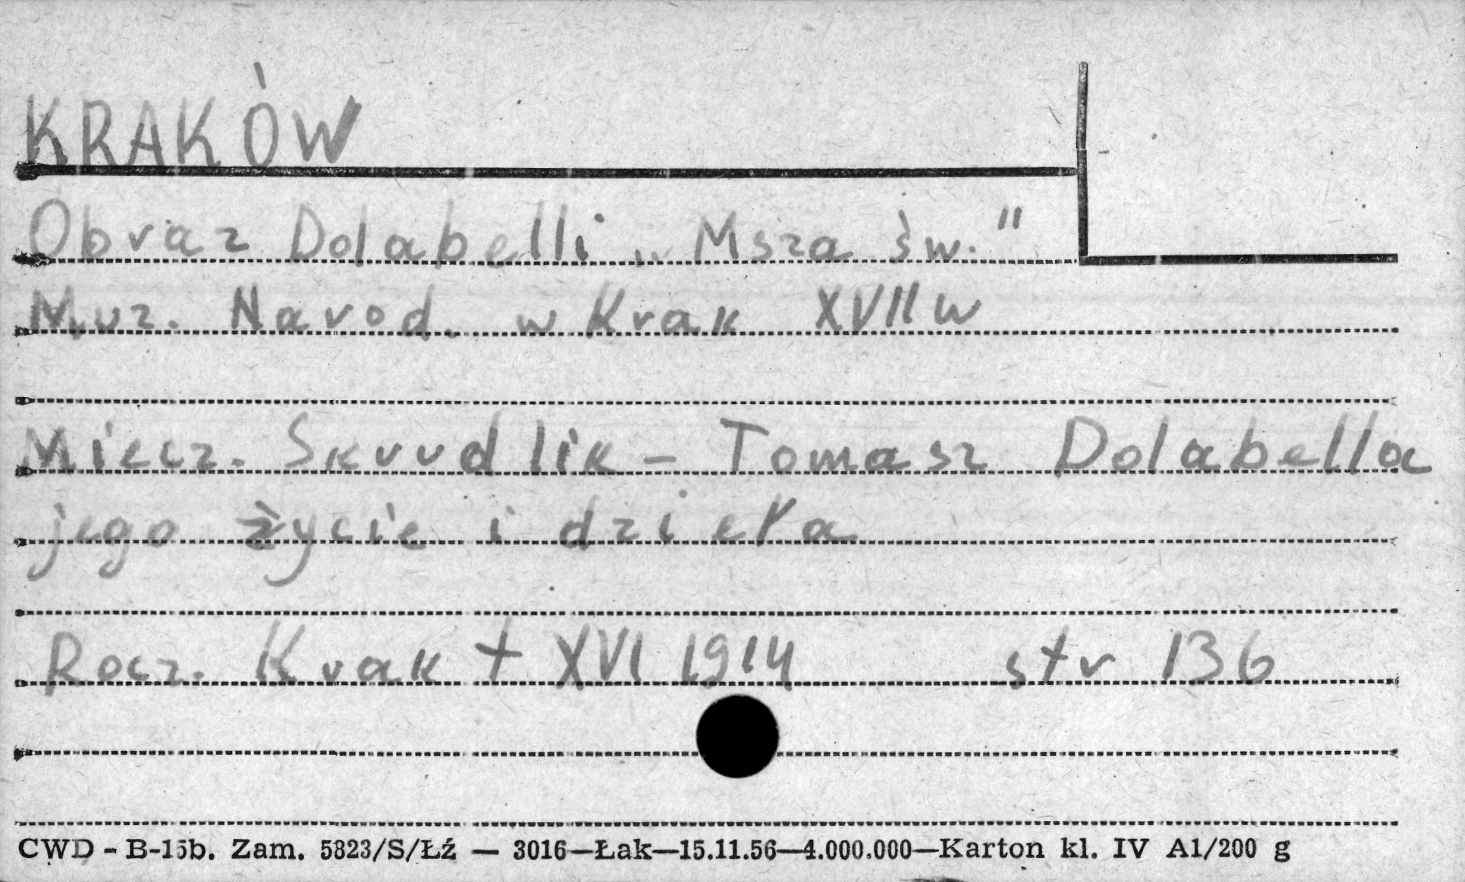 KRAKÓW
Obraz Dolabelli „Msza św."
Muz. Narod. w Krak XVII w
Miecz. Skrudlik – Tomasz Dolabella
jego życie i dzieła
Rocz. Krak t XVI 1914 str 136
CWD - B-15b. Zam. 5823/S/Łź — 3016—Łak—15.11.56—4.000.000—Karton kl. IV A1/200 g